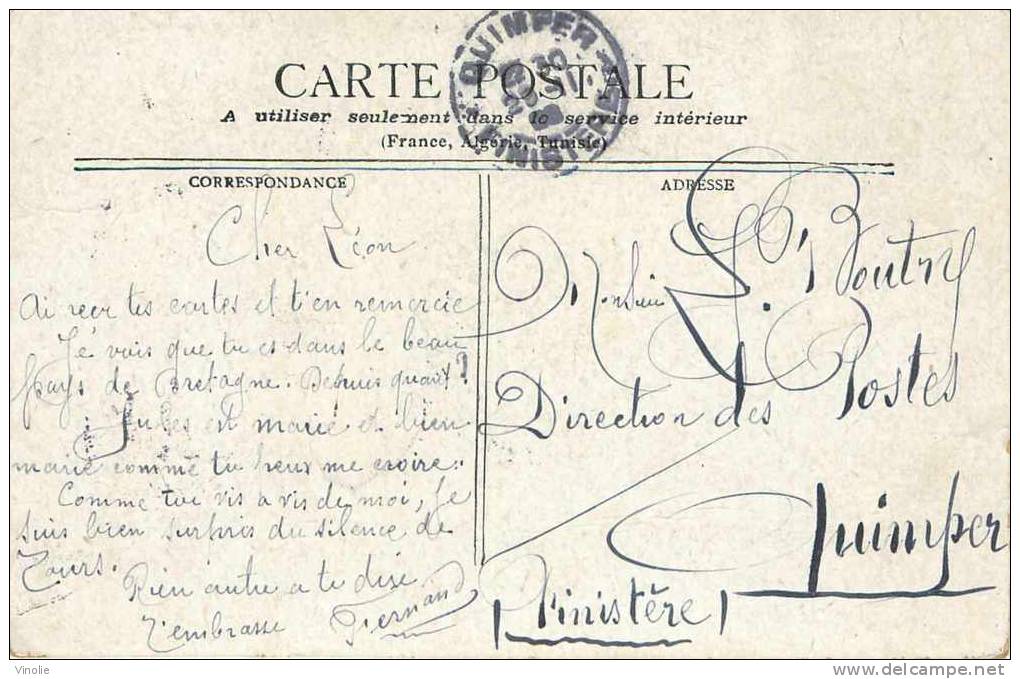 CARTE POSTALE
A utiliser seulement dans le service intérieur
(France, Algérie, Tunisie)
QUIMPER
FINIST
CORRESPONDANCE
Cher Léon
Ai reçu tes cartes et t'en remercie
Je vois que tu es dans le beau
pays de Bretagne. Depuis quand ?
Jules est marié et bien
marié comme tu peux me croire.
Comme toi vis à vis de moi, je
suis bien surpris du silence de
Tours.
Rien autre a te dire
T'embrasse Fernand
ADRESSE
Monsieur L. Boutry
Direction des Postes
Quimper
(Finistère)
Vinolie
www.delcampe.net